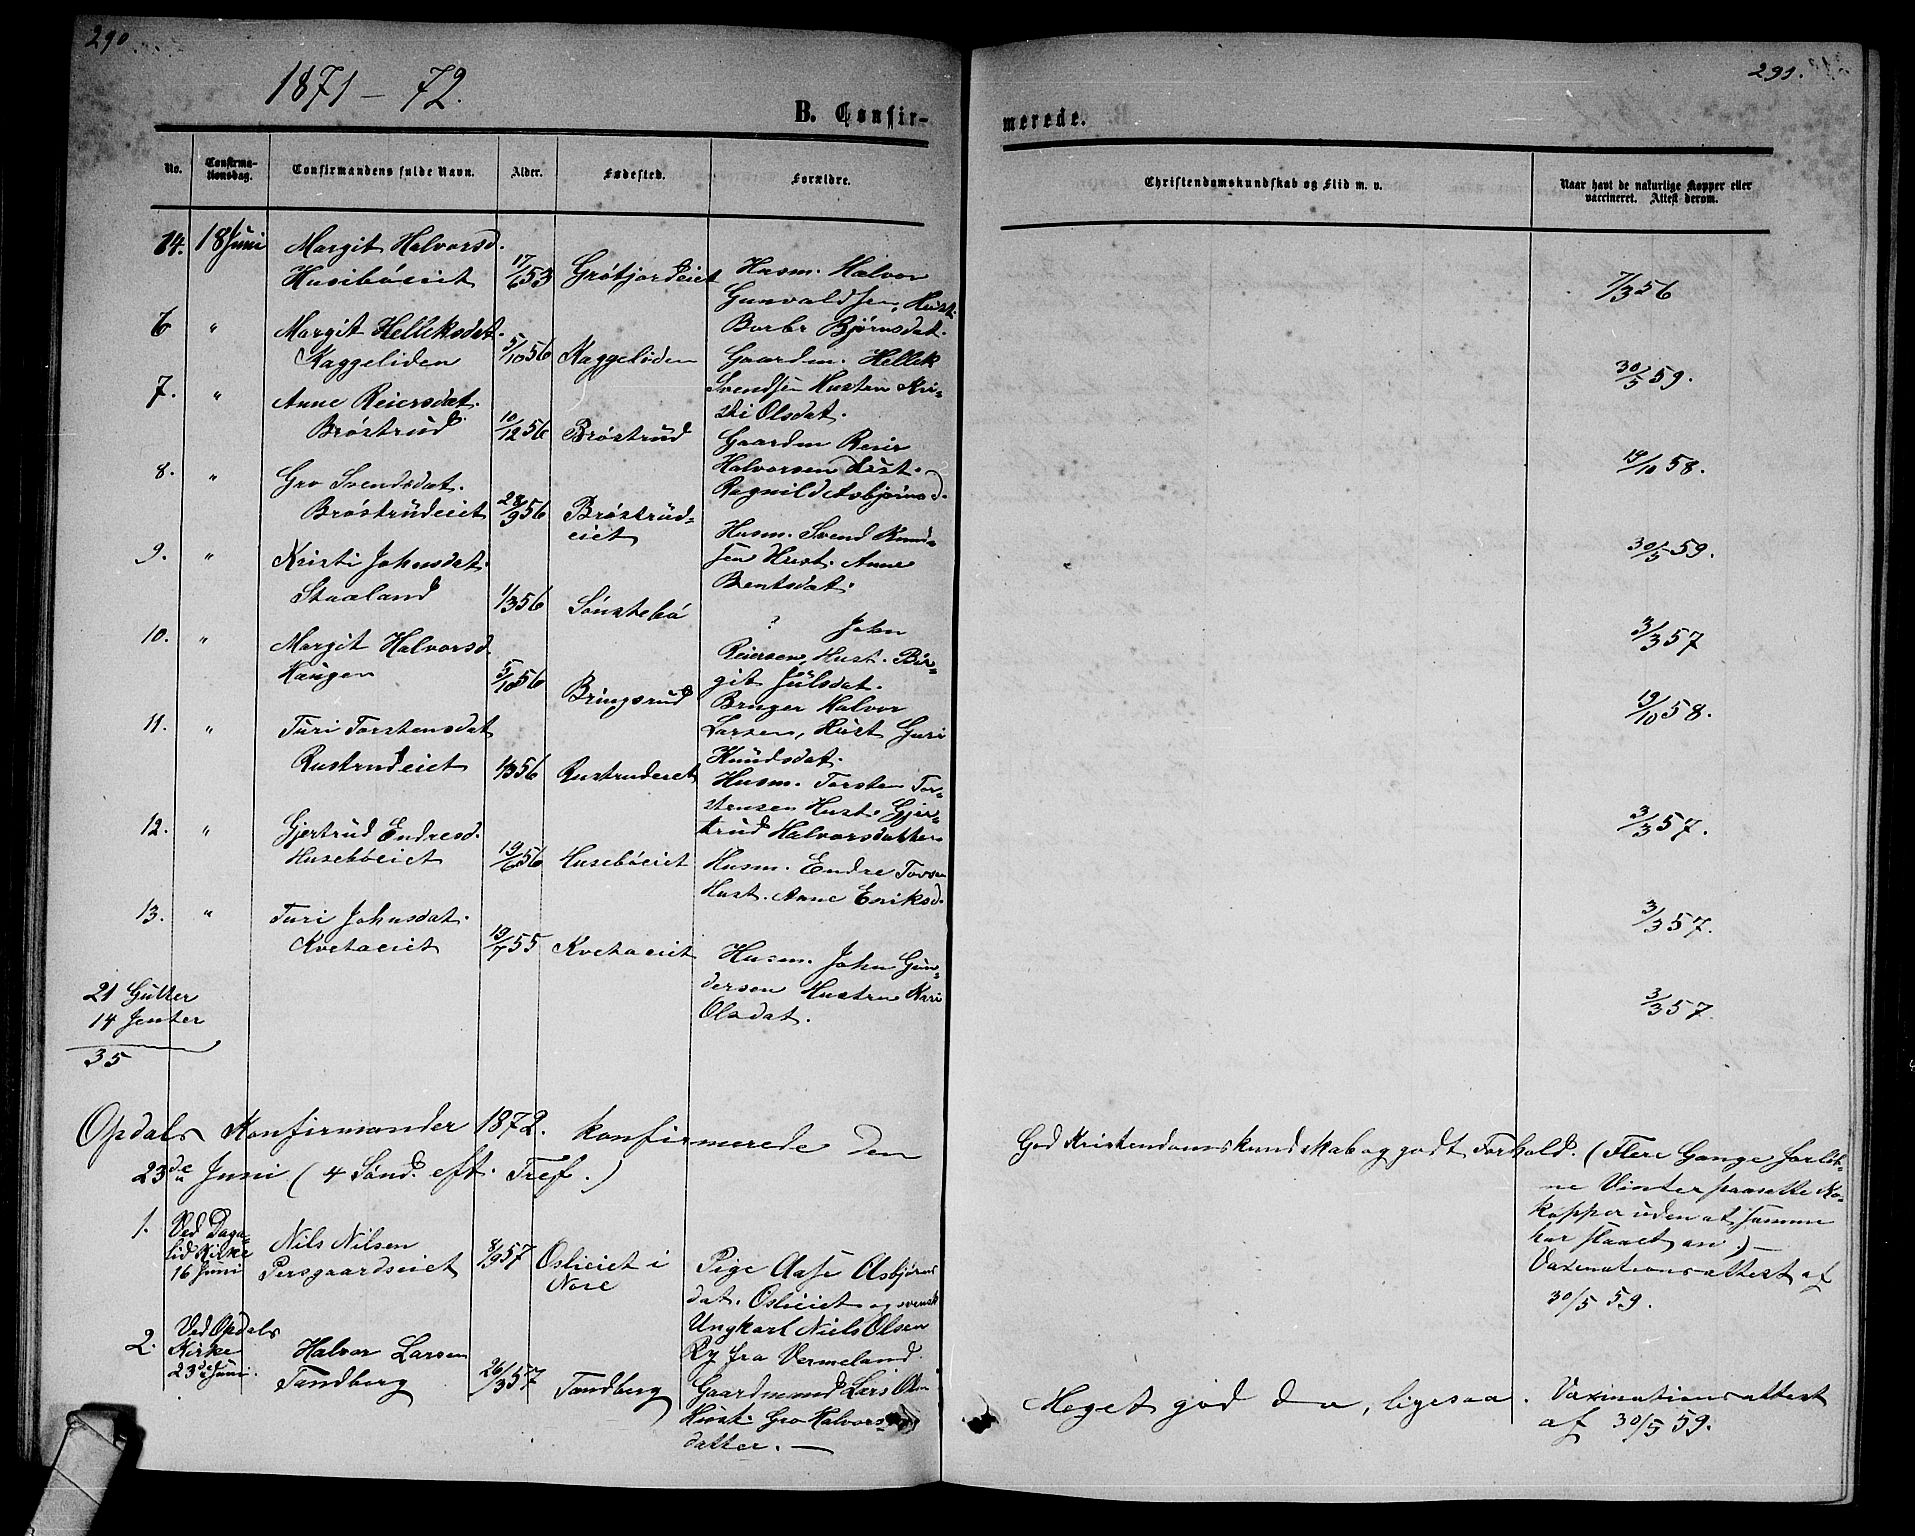 290.
291.
1871 - 72.
B. Confir-
merede.
No.
Confirma-
tionsdag.
Confirmandens fulde Navn.
Alder.
Fødested.
Forældre.
Christendomskundskab og Flid m. v.
Naar havt de naturlige Kopper eller
vaccineret. Attest derom.
14. 18 Juni Margit Halvorsd.
Husebøeiet 17/6 53 Grøtjordeiet Husm. Halvor
Gunvaldsen, Hust.
Borbr Bjørnsdat.
7/3 56
6 " Margit Helleksdat.
Kaggeliden 5/10 56 Kaggeliden Gaardm. Hellek
Svendsen Hustru Kri-
sti Olsdat.
30/5 59.
7. " Anne Reiersdat.
Brøstrud 10/12 56 Brøstrud Gaardm Reier
Halvorsen Hust.
Ragnild Asbjørnsd.
19/10 58.
8. " Gro Svendsdat.
Brøstrudeiet 28/9 56 Brøstrud-
eiet Husm. Svend Knud-
sen Hust. Anne
Bentsdat.
30/5 59.
9. " Kristi Johnsdat.
Staaland 1/3 56 Sønstebø ? John
Reiersen, Hust. Bir-
git Julsdat.
3/3 57
10. " Margit Halvorsd.
Haugen 5/10 56 Bringsrud Bruger Halvor
Larsen, Hust Guri
Knudsdat.
19/10 58.
11. " Turi Torstensdat
Rustrudeiet 1/3 56 Rustrudeiet Husm. Torsten Tor-
stensen Hust. Gjer-
trud Halvorsdatter
3/3 57.
12. " Gjertrud Endresd.
Husebøeiet 19/6 56 Husebøeiet Husm. Endre Tovsen
Hust. Anne Eriksd.
3/3 57.
13. " Turi Johnsdat.
Kvetaeiet 19/7 55 Kvetaeiet Husm. John Gun-
dersen Hustru Kari
Olsdat.
3/3 57.
21 Gutter
14 Jenter
35
Opdals Konfirmander 1872. konfirmerede den
23de Juni (4 Sønd. eft. Tref.)
God Kristendomskundskab og godt Forhold. (Flere Gange forløb-
ne Vinter paasatte Ko-
kopper uden at samme
har slaaet an.) -
1. Ved Daga-
lid Kirke
16 Juni Nils Nilsen
Persgaardseiet 8/9 57 Oslieiet i
Nore Pige Aase Asbjørns
dat. Oslieiet og svensk
Ungkarl Niels Olsen
Ry fra Vermeland.
Vaxinationsattest af
30/5 59.
2. Ved Opdals
Kirke
23de Juni. Halvor Larsen
Tandberg 26/3 57 Tandberg Gaardmand Lars Olsen
Hust. Gro Halvors-
datter. -
Meget god do, ligesaa. Vaxinationsattest
af 30/5 59.